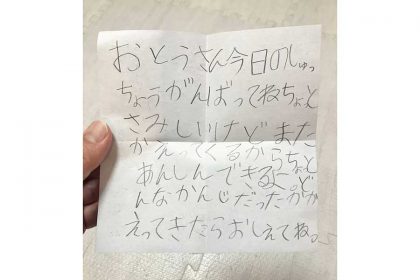 おとうさん今日のしゅっ
ちょうがんばってねちょと
さみしいけどまた
かえってくるからちょと
あんしんできるよ。ど
んなかんじだったかか
えってきたらおしえてね。